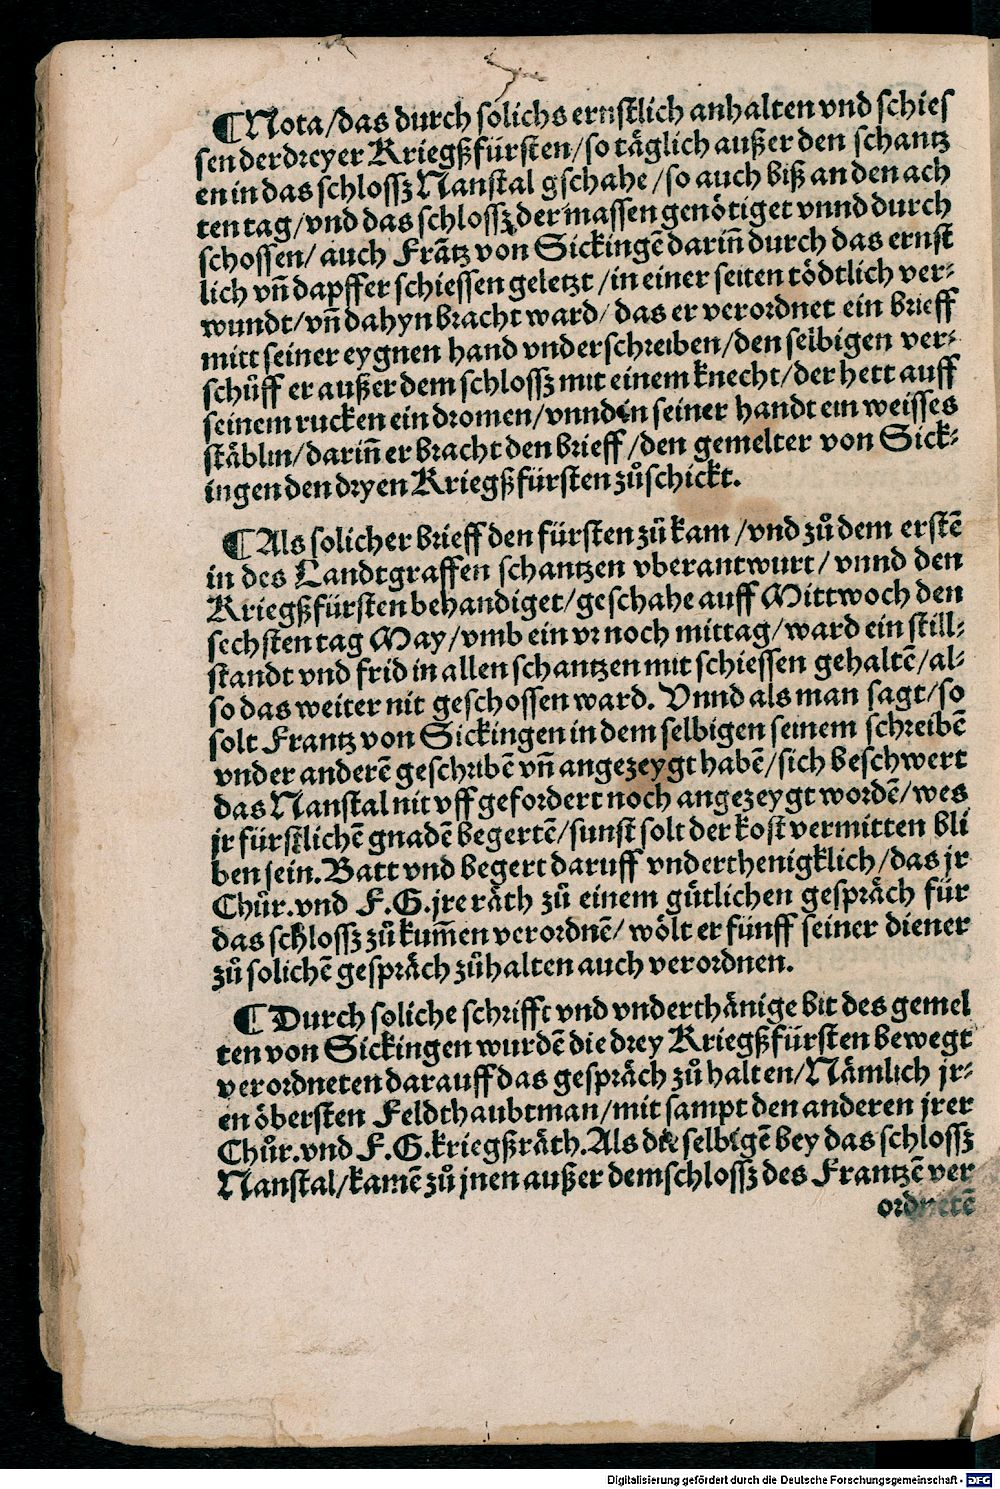 ¶Nota/das durch solichs ernstlich anhalten vnd schies
sen der dreyer Kriegßfürsten/so täglich außer den schantz
en in das schlossz Nanstal gschahe/so auch biß an den ach
ten tag/vnd das schlossz der massen genötiget vnnd durch
schossen/ auch Frãtz von Sickingẽ dariñ durch das ernst
lich vñ dapffer schiessen geletzt/in einer seiten tödtlich ver⸗
wundt/vñ dahyn bracht ward/ das er verordnet ein brieff
mitt seiner eygnen hand vnderschreiben/den selbigen ver⸗
schüff er außer dem schlossz mit einem knecht/der hett auff
seinem rucken ein dromen/vnnd in seiner handt ein weisses
stäblin/dariñ er bracht den brieff/den gemelter von Sick⸗
ingen den dryen Kriegßfürsten zůschickt.
¶Als solicher brieff den fürsten zů kam/vnd zů dem erstẽ
in des Landtgraffen schantzen vberantwurt/ vnnd den
Kriegßfürsten behandiget/geschahe auff Mittwoch den
sechsten tag May/vmb ein vr noch mittag/ward ein still⸗
standt vnd frid in allen schantzen mit schiessen gehaltẽ/al⸗
so das weiter nit geschossen ward. Vnnd als man sagt/so
solt Frantz von Sickingen in dem selbigen seinem schreibẽ
vnder anderẽ geschribẽ vñ angezeygt habẽ/sich beschwert
das Nanstal nit vff gefordert noch angezeygt wordẽ/wes
jr fürstlichẽ gnadẽ begertẽ/sunst solt der kost vermitten bli
ben sein. Batt vnd begert daruff vnderthenigklich/das jr
Chůr. vnd F.G. jre räth zů einem gütlichen gespräch für
das schlossz zů kum̃en verordnẽ/ wölt er fünff seiner diener
zů solichẽ gespräch zůhalten auch verordnen.
¶Durch soliche schrifft vnd vnderthänige bit des gemel
ten von Sickingen wurdẽ die drey Kriegßfürsten bewegt
verordneten darauff das gespräch zů halten/Nämlich jr⸗
en öbersten Feldthaubtman/mit sampt den anderen jrer
Chůr. vnd F.G. kriegßräth. Als die selbigẽ bey das schlossz
Nanstal/kamẽ zů jnen außer dem schlossz des Frantzẽ ver
ordnetẽ
Digitalisierung gefördert durch die Deutsche Forschungsgemeinschaft - DFG